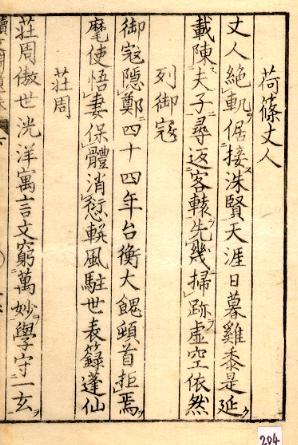 荷篠丈人
丈人絶軌倨接洙賢天涯日暮雞黍是延
載陳夫子尋返客轅先幾掃跡虚空依然
列御寇
御寇隠鄭四十四年台衡大餽頓首拒焉
麾使悟妻保體消愆風駐世表籙蓬仙
荘周
荘周傲世洸洋寓言文窮萬妙學守一玄
204